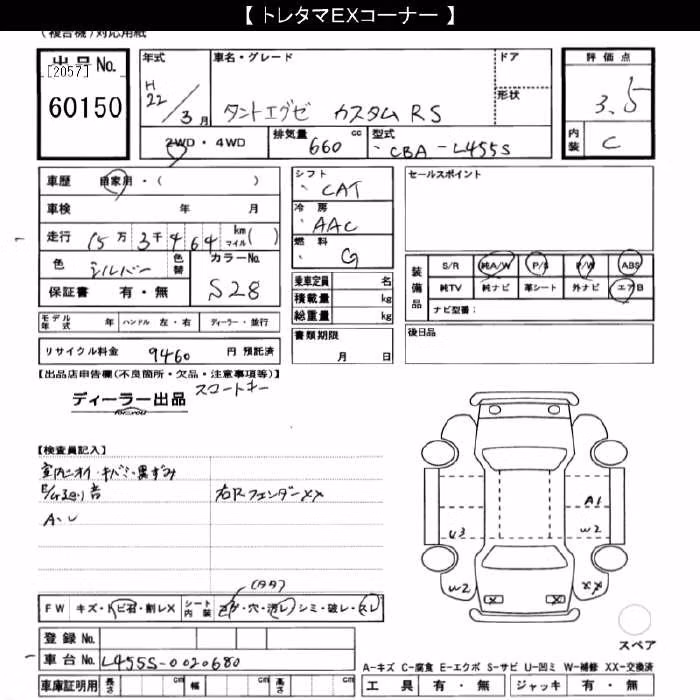 【 トレタマEXコーナー 】
(複合機)対応用紙
出品No.
[2057]
60150
年式
H
22 / 3 月
車名・グレード
タントエグゼ カスタム RS
ドア
形状
評価点
3.5
内装 C
2WD・4WD
排気量 660 cc
型式 CBA-L455S
車歴 自家用・( )
車検 年 月
走行 15万 3千 4 6 4 km マイル ( )
色 シルバー 色替
カラーNo.
S28
保証書 有・無
モデル年式 年 ハンドル 左・右 ディーラー・並行
リサイクル料金 9460 円 預託済
シフト
CAT
冷房
AAC
燃料
G
乗車定員 名
積載量 kg
総重量 kg
書類期限
月 日
セールスポイント
装備品
S/R 純A/W P/S P/W ABS
純TV 純ナビ 革シート 外ナビ エアB
ナビ型番:
後日品
【出品店申告欄(不良箇所・欠品・注意事項等)】
スコートキー
ディーラー出品
for you
【検査員記入】
室内ニオイ・キバミ・黒ずみ
右Rフェンダーxx
A・U
A1
U3
W2
W2
XX
(タタ)
FW キズ・トビ石・割レX
シート内装 コゲ・穴・汚レ シミ・破レ・スレ
登録 No.
車台 No. L455S-0020680
車庫証明用 長さ cm 幅 cm 高さ cm
スペア
A-キズ C-腐食 E-エクボ S-サビ U-凹ミ W-補修 XX-交換済
工具 有・無 ジャッキ 有・無